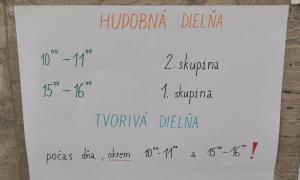 HUDOBNÁ DIELŇA
10⁰⁰ - 11⁰⁰ 2. skupina
15⁰⁰ - 16⁰⁰ 1. skupina
TVORIVÁ DIELŇA
počas dňa, okrem 10⁰⁰-11⁰⁰ a 15⁰⁰-16⁰⁰ !